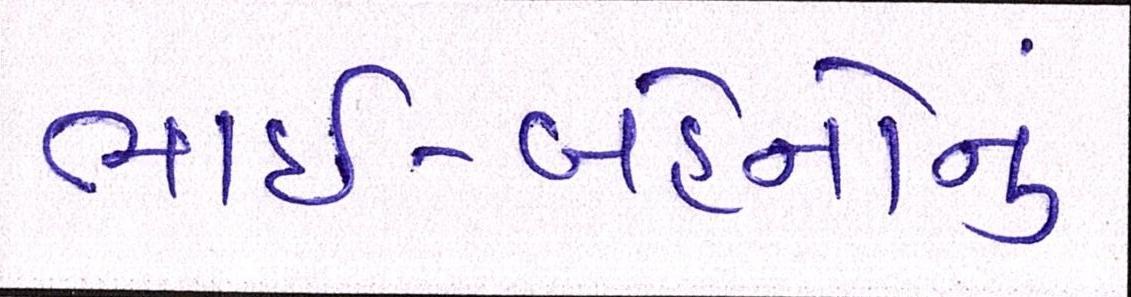 ભાઈ-બહેનોનું